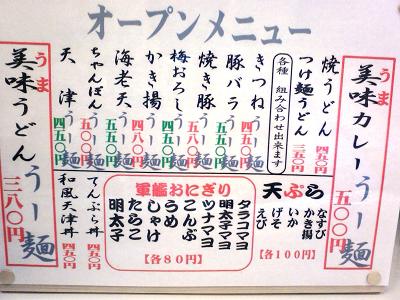 オープンメニュー
うま
美味カレーうー麺
五〇〇円
焼うどん 四五〇円
つけ麺うどん 三五〇円
各種 組み合わせ出来ます
きつねうー麺 四五〇円
豚バラうー麺
焼き豚うー麺 五五〇円
梅おろしうー麺
かき揚うー麺 四五〇円
海老天うー麺 五五〇円
ちゃんぽんうー麺 五〇〇円
天津うー麺 四五〇円
うま
美味うどんうー麺
三八〇円
天ぷら
なすび
かき揚
いか
げそ
えび
各100円
軍艦おにぎり
タラコマヨ
明太子マヨ
ツナマヨ
こんぶ
うめ
しゃけ
たらこ
明太子
各80円
てんぷら丼 四五〇円
和風天津丼 四五〇円